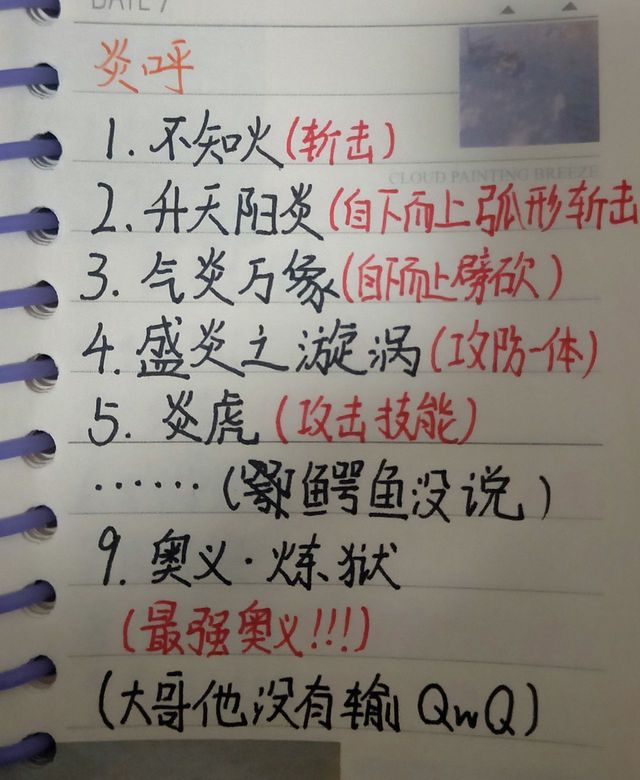 炎呼
1. 不知火(斩击)
CLOUD PAINTING BREEZE
2. 升天阳炎(自下而上弧形斩击
3. 气炎万象(自下而上劈砍)
4. 盛炎之漩涡(攻防一体)
5. 炎虎(攻击技能)
……(鳄鱼没说)
9. 奥义·炼狱
(最强奥义!!!)
(大哥他没有输 QwQ)